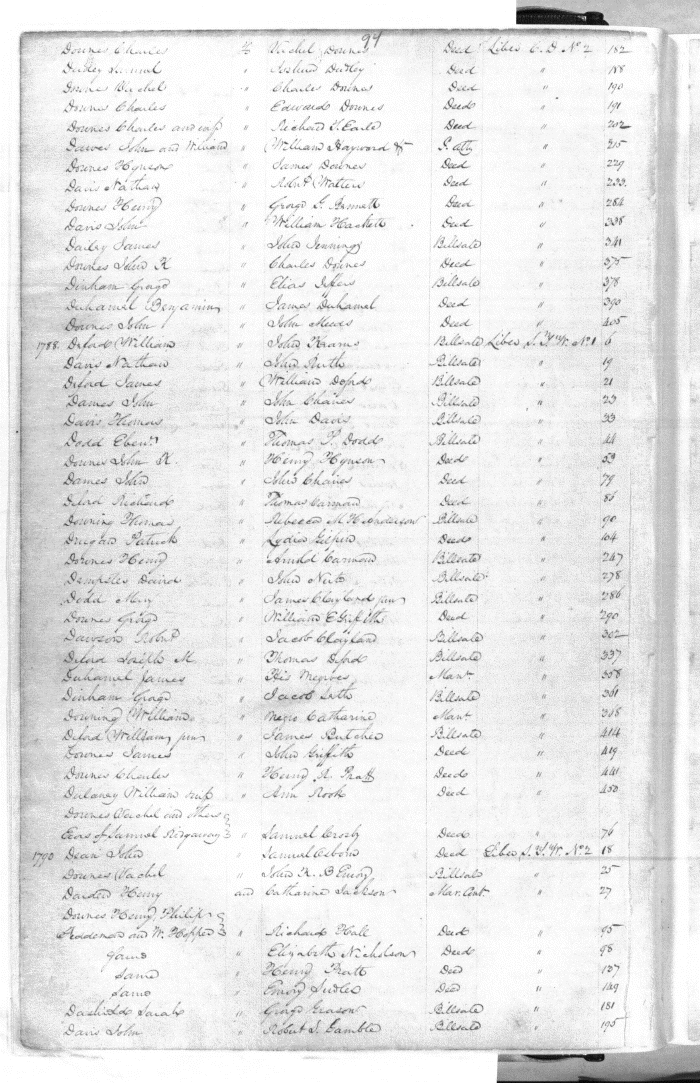 94
Downes Charles to Vachel Downes Deed Liber C. D. No 2 182
Dudley Samuel " Joshua Dudley Deed " 188
Downes Vachel " Charles Downes Deed " 190
Downes Charles " Edward Downes Deed " 191
Downes Charles and " Richard T. Earle Deed " 202
Dawes John and William " William Hayward & P. atty " 215
Downes Hynson " James Downes Deed " 229
Davis Nathan " Robert Walters Deed " 233
Downes Henry " George G. Deed " 284
Davis John " William Hackett Deed " 338
Dailey James " John Jennings Billsale " 341
Downes John K " Charles Downes Deed " 375
Dinham George " Elias Billsale " 378
Duhamel Benjamin " James Duhamel Deed " 390
Downes John " John Meeds Deed " 405
1788 Deford William " John Krams Billsale Liber S. T. W. No 1 6
Davis Nathan " John Ruth Billsale " 19
Deford James " William Deford Billsale " 21
Dames John " John Chaires Billsale " 23
Davis Thomas " John Davis Billsale " 33
Dodd Eben. " Thomas P. Dodd Billsale " 44
Downes John K. " Henry Hynson Deed " 53
Dames John " John Chaires Deed " 79
Deford Richard " Thomas Carman Deed " 86
Downing Thomas " Rebecca M. H. Anderson Billsale " 90
Dugan Patrick " Lydia Gilpin Deed " 104
Downes Henry " Arnold Carman Billsale " 247
Dempster David " John Billsale " 278
Dodd Mary " James Clayland jun Billsale " 286
Downes George " William E Griffith Deed " 290
Dawson Robert " Jacob Clayland Billsale " 302
Deford Joseph M " Thomas Deford Billsale " 337
Duhamel James " His Negroes Man. " 358
Dinham George " Jacob Seth Billsale " 361
Downing William " Negro Catharine Man. " 368
Deford William jun " James Butcher Billsale " 414
Downes James " John Griffith Deed " 419
Downes Charles " Henry Pratt Deed " 441
Dulaney William " Ann Rook Deed " 450
Downes Vachel and others
Exors of Samuel Ridgaway " Samuel Crosby Deed " 76
1790 Dean John " Samuel Osborn Deed Liber S. T. W. No 2 18
Downes Vachel " John K. B Emory Billsale " 25
Darden Henry and Catharine Jackson Mar. Cont. " 27
Downes Henry, Philip
Feddeman and W. Hopper " Richard Hall Deed " 95
Same " Elizabeth Nicholson Deed " 98
Same " Henry Pratt Deed " 137
Same " Emory Sudler Deed " 149
Dashield Sarah " George Billsale " 181
Davis John " Robert S. Gamble Billsale " 195